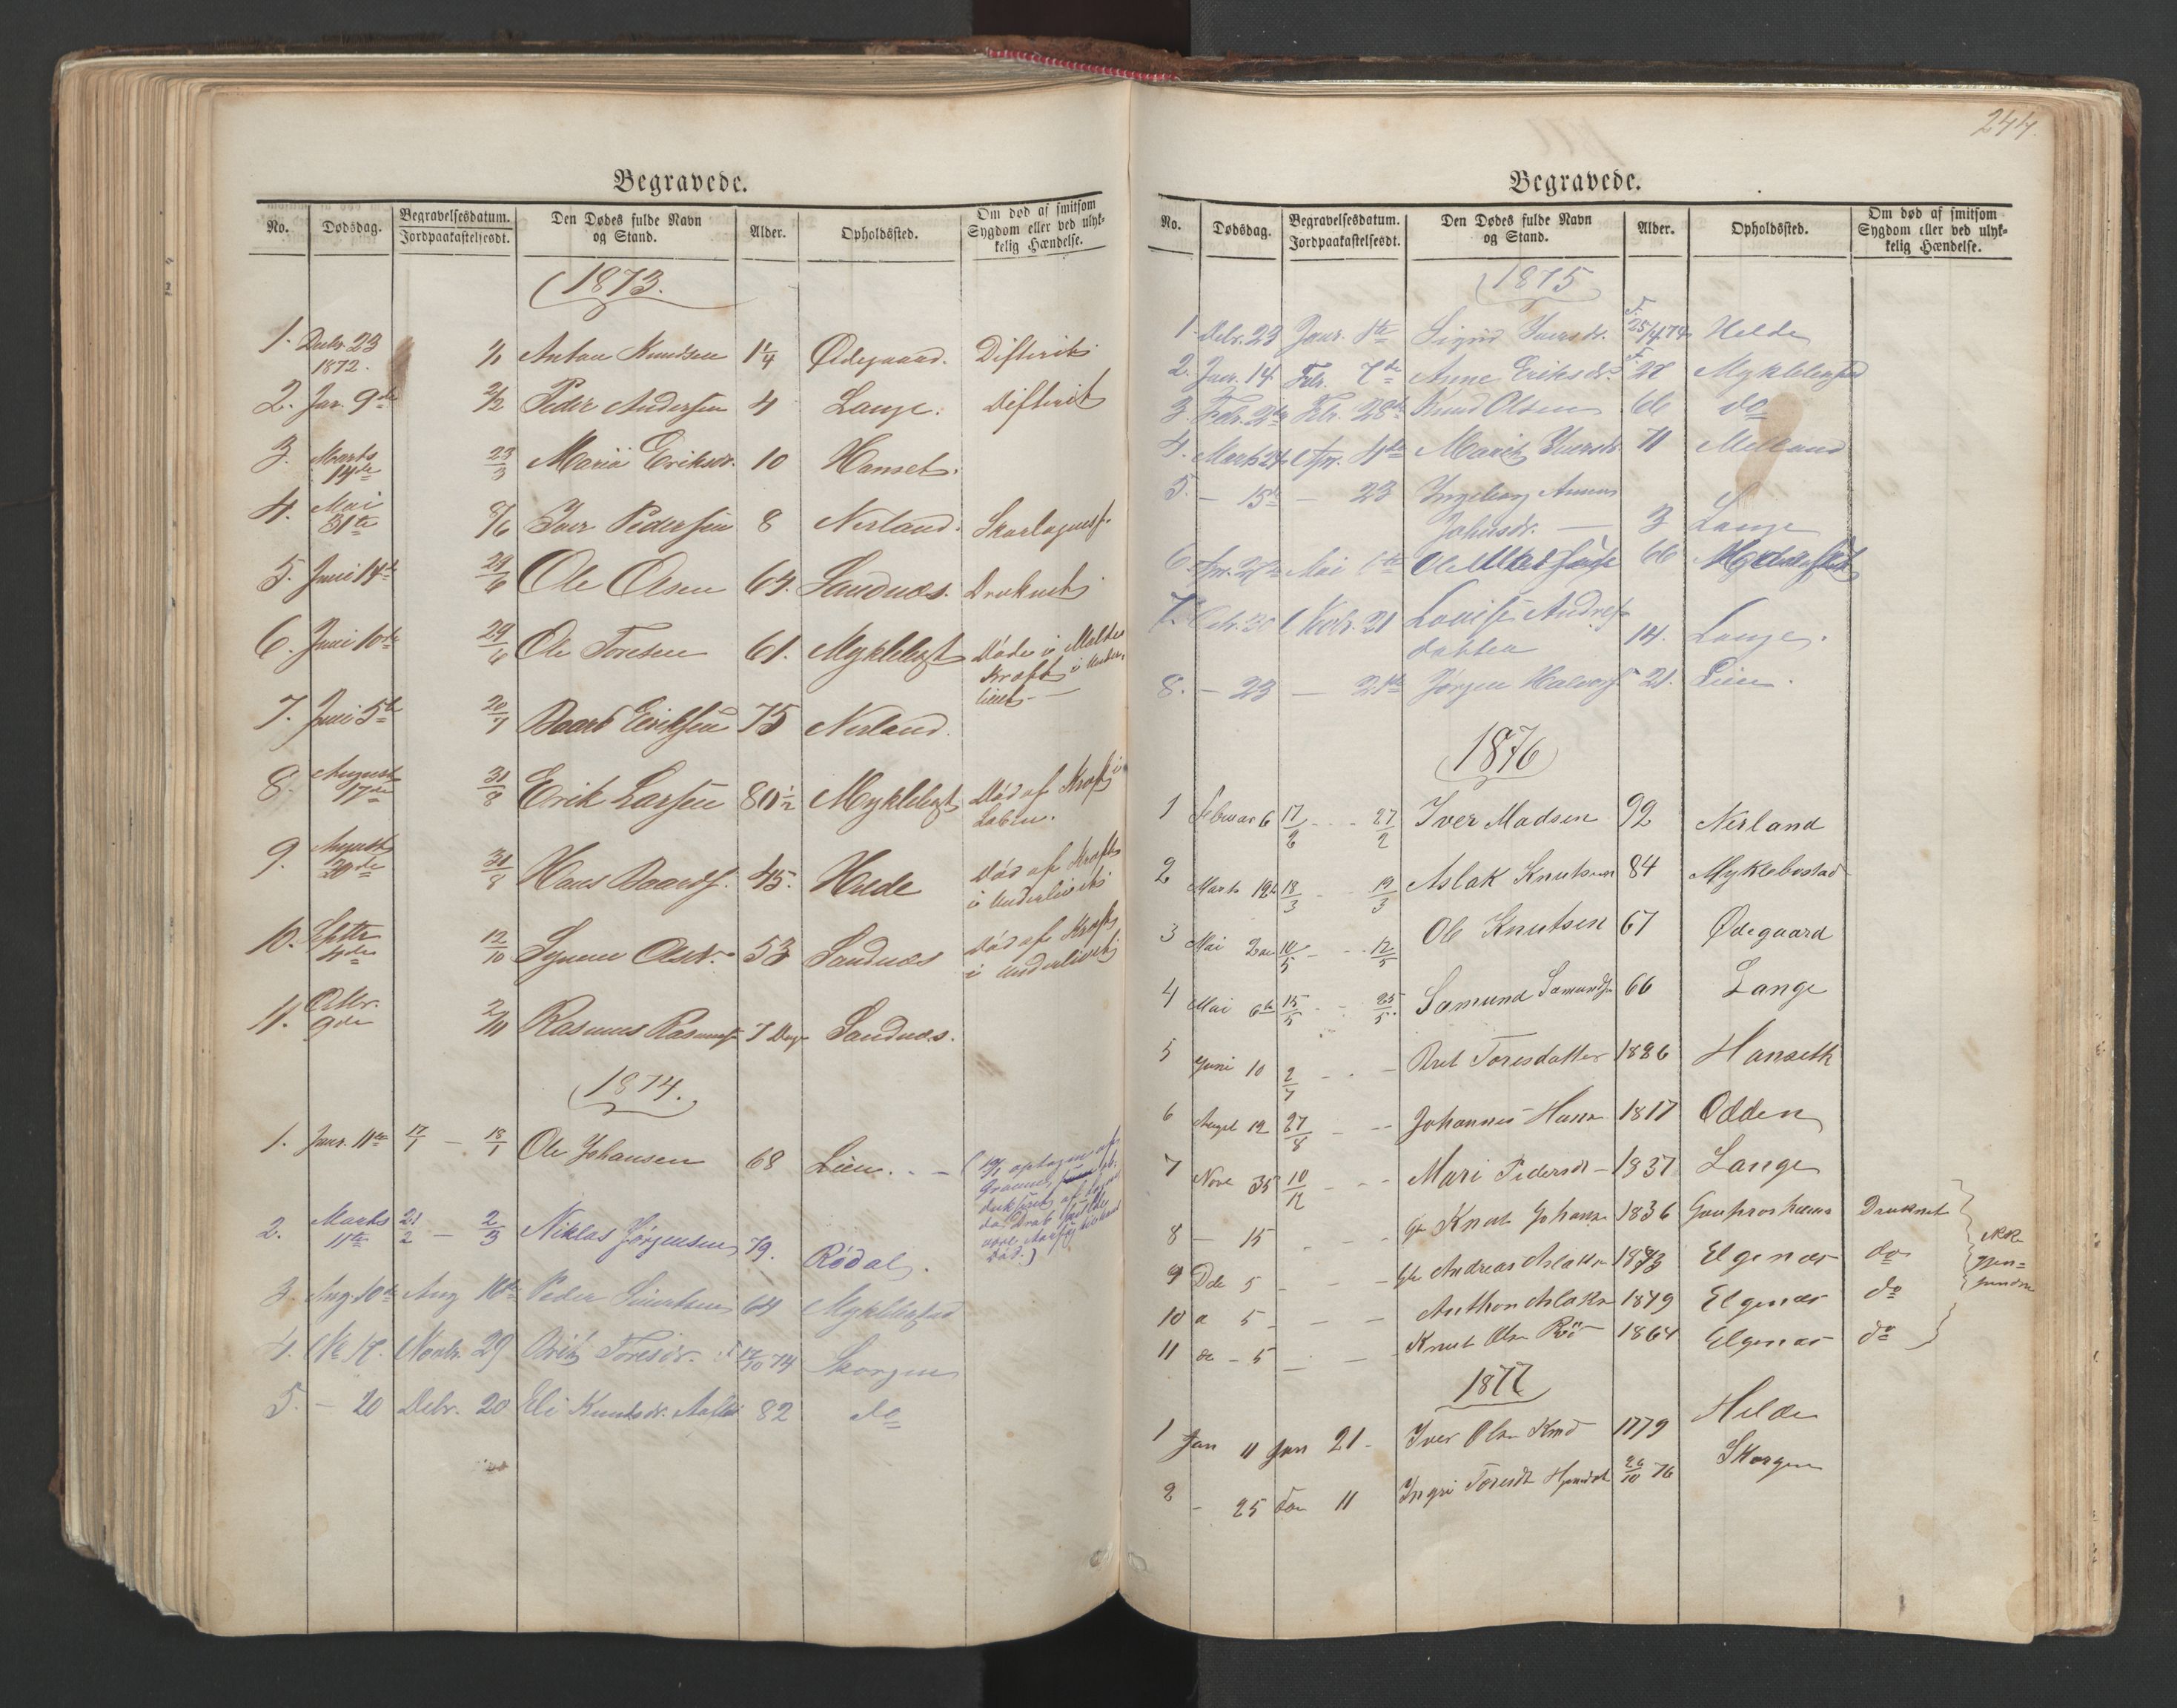 Begravede.
No. Dødsdag. Begravelsesdatum. Jordpaakastelsesdt. Den Dødes fulde Navn og Stand. Alder. Opholdssted. Om død af smitsom Sygdom eller ved ulykkelig Hændelse.
1873.
1. Decbr. 23 1872. Anton Knudsen 1 1/4 Ødegaard. Difterit
2. Jan. 9de 2/2 Peder Andersen 4 Lange. Difterit
3. Marts 14de 23/3 Marit Eriksdr. 10 Hanset.
4. Mai 31te 8/6 Iver Pedersen 8 Nerland.
5. Juni 14de 29/6 Ole Olsen 64. Sandnæs. Druknet
6. Juni 10de 29/6 Ole Toresen 61. Myklebgst Døde i Molde
Kræft i Under-
livet
7. Juni 5te 20/7 Baard Eriksen 75 Nerland.
8. August 17de 31/8 Erik Larsen 80 1/2 Myklebgst Død af Kræft i
Læben.
9. August 20de 31/8 Hans Baards. 45. Helde Død af Kræft
i Underlivet
10. Septbr 4de 12/10 Synne Olsdr. 53 Sandnæs Død af Kræft
i Underlivet
11. Octbr. 9de 2/11 Rasmus Rasmuss. 7 Dage Sandnæs.
1874.
1. Janr. 11te 17/1 — 18/1 Ole Johansen 68 Lien.
2. Marts 11te 21/2 — 2/3 Niklas Jørgensen 79. Rødal.
3. Aug. 10de Aug 16de Peder Sivertsen 64 Myklebgstad
4. No 17. Novbr. 29 Brit Toresdr. 12/10 74 Skorgen
5. — 20 Debr. 20 Eli Knutsdr. 82 do
244.
Begravede.
No. Dødsdag. Begravelsesdatum. Jordpaakastelsesdt. Den Dødes fulde Navn og Stand. Alder. Opholdssted. Om død af smitsom Sygdom eller ved ulykkelig Hændelse.
1875
1. Debr. 23 Janr. 1te Sigrid Iversdr. F. 25/4 74 Helde
2. Janr. 14 Febr. 7de Anne Eriksdr. F. 27 Myklebgstad
3. Febr. 2de Febr. 28de Knud Olsen 66 do
4. Marts 24 Apr. 4de Marit Iversdr. 71 Melland
5. — 15de — 23 Ingeborg Anna
Johnsdr. — 3 Lange
6. Apr. 27de Mai 6te Ole 66
7. Octr. 30 Novbr. 21 Louise Andreas
datter 14. Lange.
8. — 23 — 21de Jørgen Halvors. 21. Lien.
1876
1 Februar 6 17/2 - - 27/2 Iver Madsen 92 Nerland
2 Marts 12 18/3 - - 19/3 Aslak Knutsen 84 Myklebostad
3 Mai 2den 10/5 - - 12/5 Ole Knutsen 67 Ødegaard
4 Mai 6te 15/5 - - 25/5 Samund Samunds. 66 Lange
5 Juni 10 2/7 - - Beret Toresdatter 1826 Hanseth
6 August 12 27/8 - - Johannes Hansen 1817 Odden
7 Nove 10/12 - - Mari Pedersdr 1837 Lange
8 — 15 - - Knut Johans. 1836 Druknet
9 Dde 5 - - Andreas Aslaksn 1873 Elgenæs do
ikke
gjen-
fundne
10 a 5 - - Anthon Aslaksn 1849 Elgenæs do
11 de - 5 - - Knut Olsn Rø 1864 Elgenæs do
1877
1 Jan 11 Jan 21 - Iver Olsn 1779 Helde
2 - 25 Febr 11 Ingri Toresdt 26/10 76 Skorgen